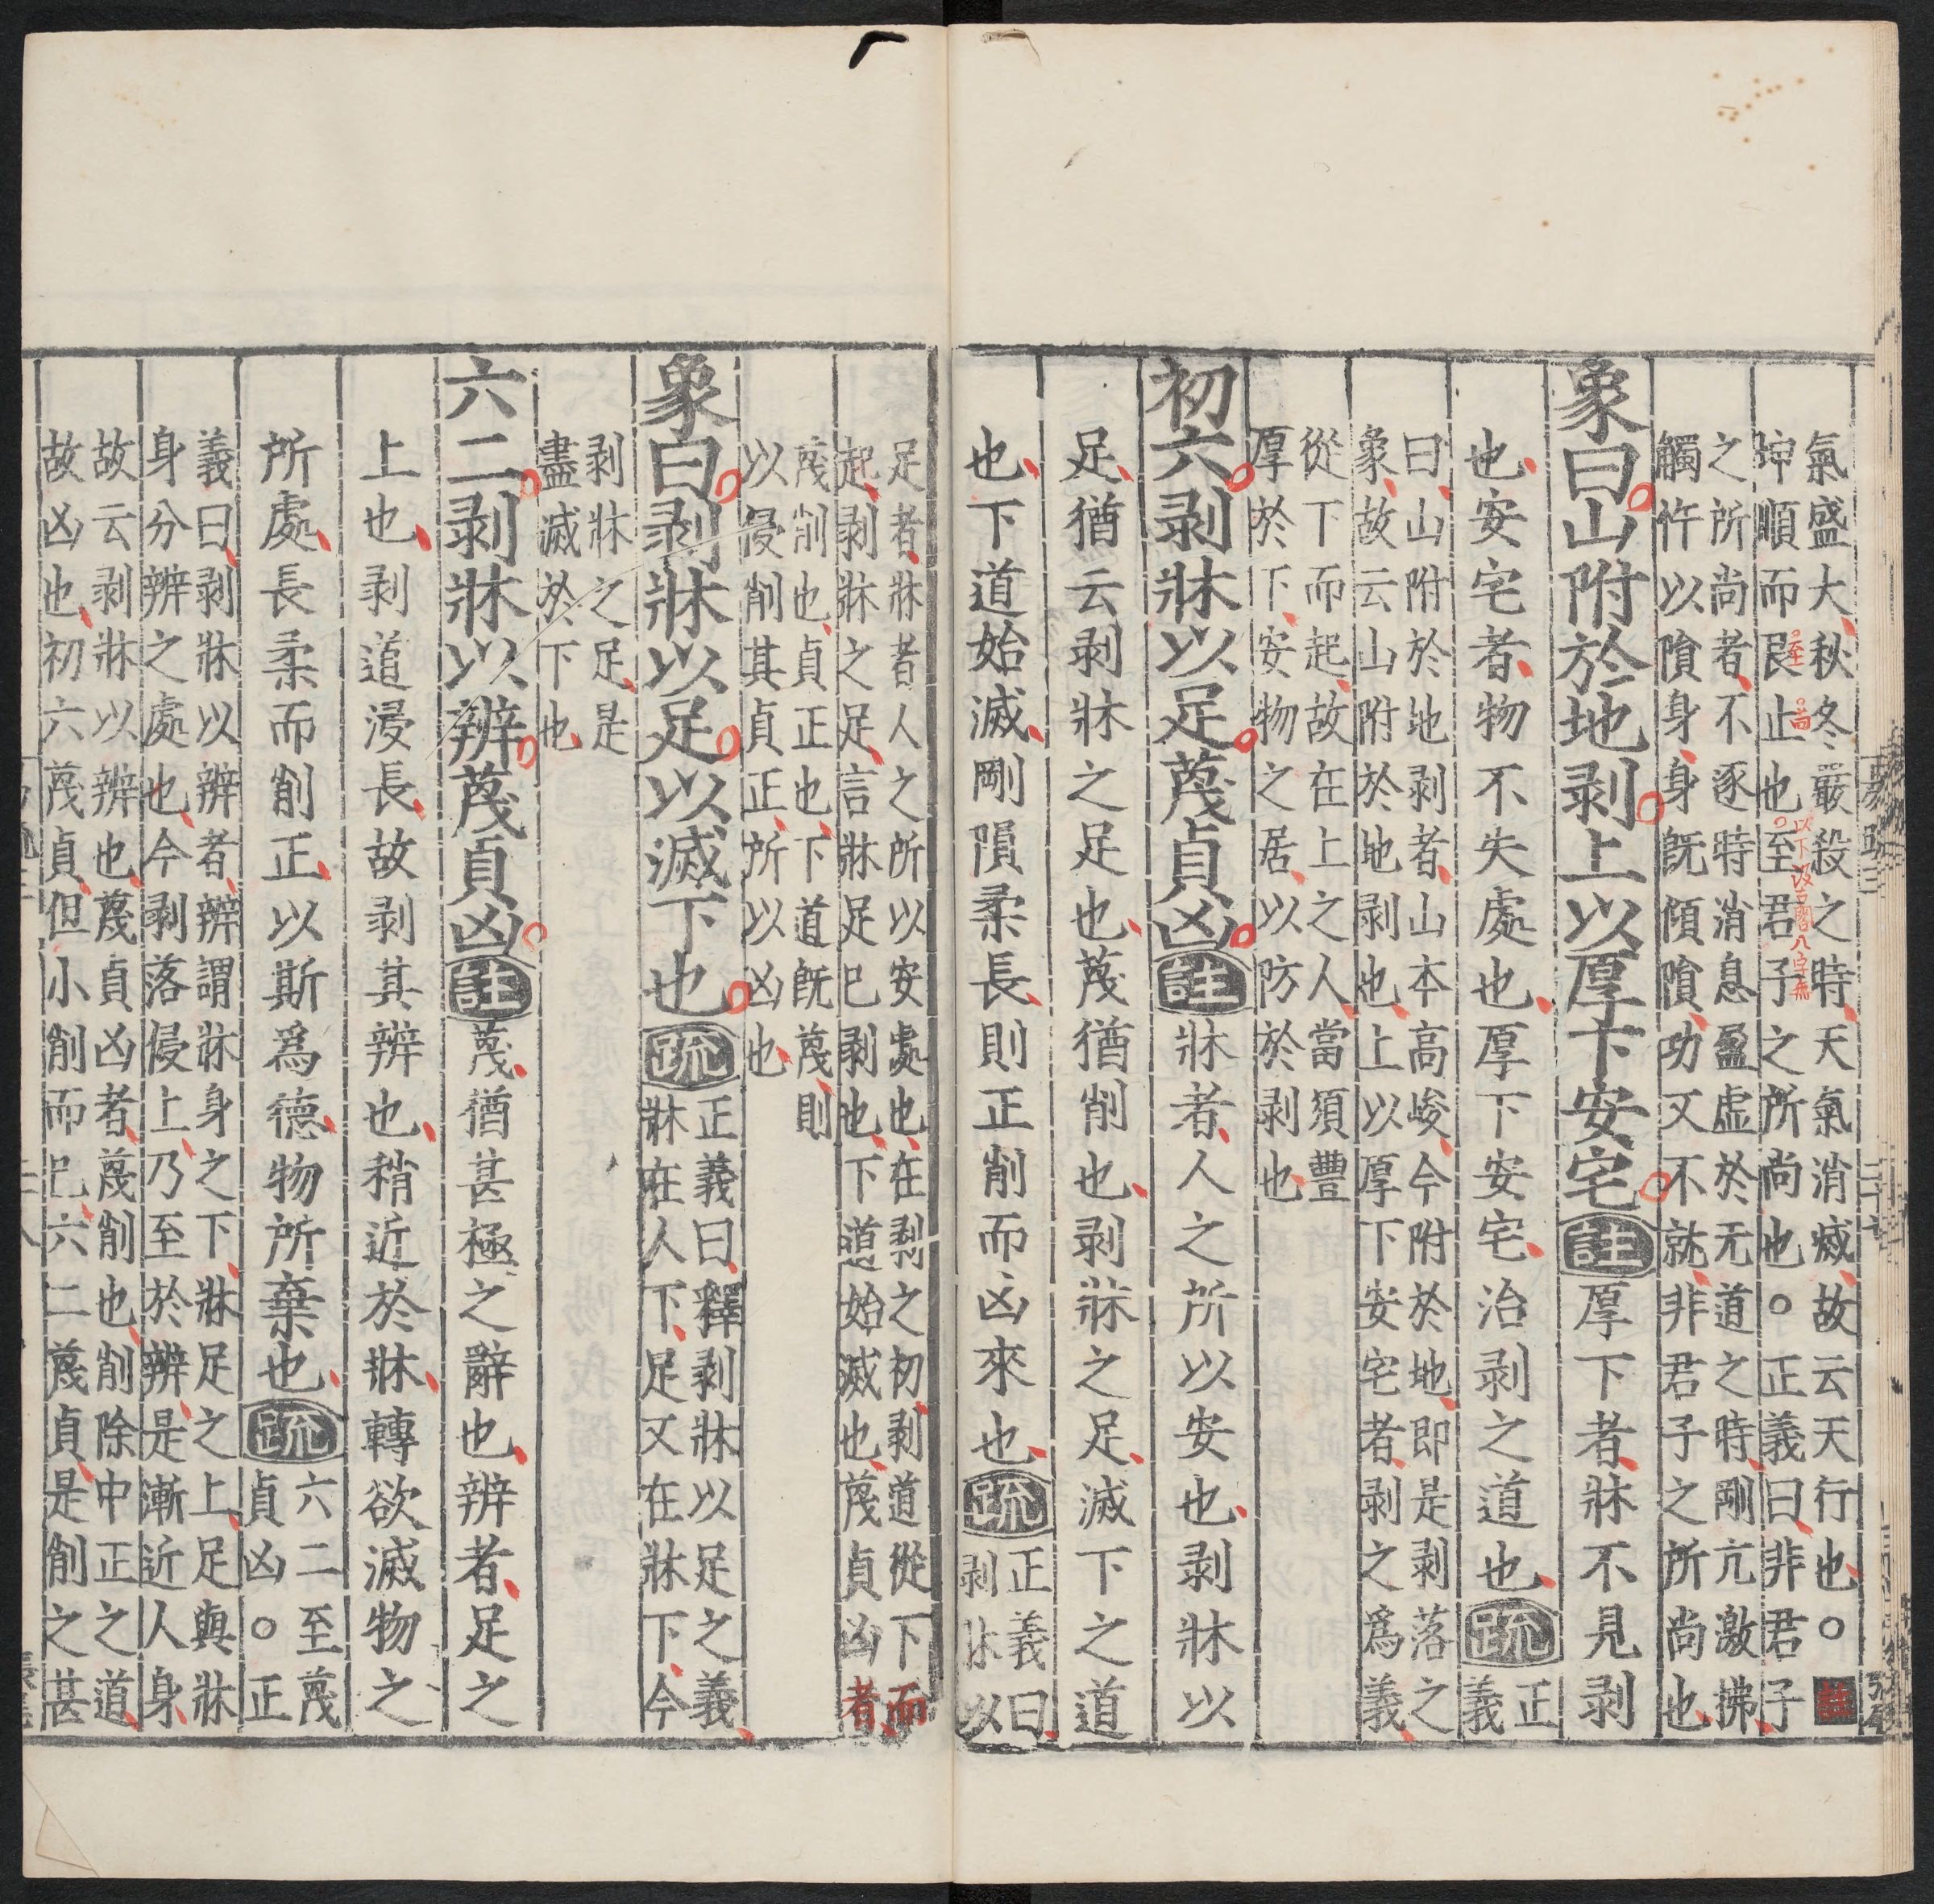 氣盛大秋冬嚴殺之時天氣消滅故云天行也○註
坤順而艮止也至君子之所尚也○正義曰非君子
至
尚
以下汲古閣八字無
之所尚者不逐時消息盈虛於无道之時剛亢激拂
觸忤以隕身身旣傾隕功又不就非君子之所尚也
象曰山附於地剥上以厚下安宅註厚下者牀不見剥
也安宅者物不失處也厚下安宅治剥之道也疏正
義
曰山附於地剥者山本高峻今附於地即是剥落之
象故云山附於地剥也上以厚下安宅者剥之爲義
從下而起故在上之人當須豐
厚於下安物之居以防於剥也
初六剥牀以足蔑貞凶註牀者人之所以安也剥牀以
足猶云剥牀之足也蔑猶削也剥牀之足滅下之道
也下道始滅剛隕柔長則正削而凶來也疏正義曰
剥牀以
足者牀者人之所以安處也在剥之初剥道從下而
起剥牀之足言牀足已剥也下道始滅也蔑貞凶者
蔑削也貞正也下道旣蔑則
以侵削其貞正所以凶也
象曰剥牀以足以滅下也疏正義曰釋剥牀以足之義
牀在人下足又在牀下今
剥牀之足是
盡滅於下也
六二剥牀以辨蔑貞凶註蔑猶甚極之辭也辨者足之
上也剥道浸長故剥其辨也稍近於牀轉欲滅物之
所處長柔而削正以斯爲德物所棄也疏六二至蔑
貞凶○正
義曰剥牀以辨者辨謂牀身之下牀足之上足與牀
身分辨之處也今剥落侵上乃至於辨是漸近人身
故云剥牀以辨也蔑貞凶者蔑削也削除中正之道
故凶也初六蔑貞但小削而已六二蔑貞是削之甚